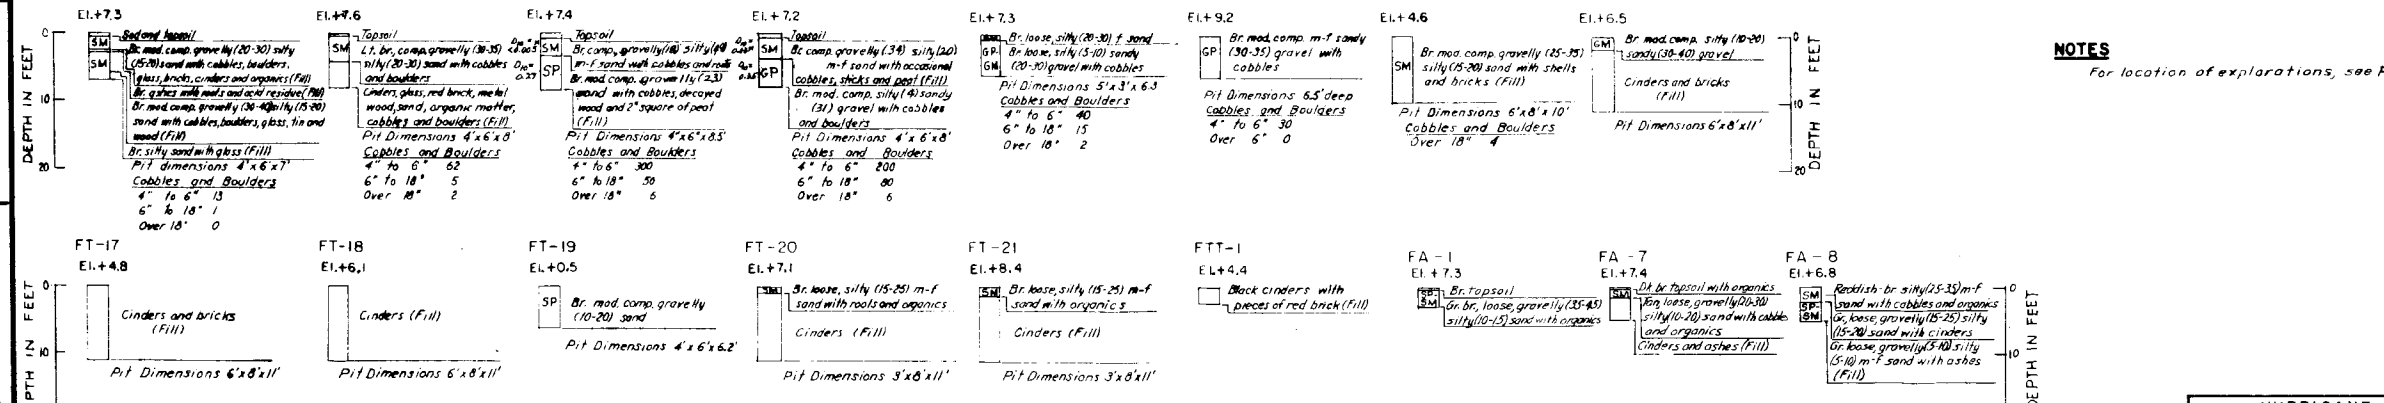 El.+7.3
0
DEPTH IN FEET
10
20
SM
SM
Sod and topsoil
Br. mod. comp. gravelly (20-30) silty
(15-20) sand with cobbles, boulders,
glass, brick, cinders and organics (Fill)
Br. ashes with roots and acid residue (Fill)
Br. mod. comp. gravelly (30-40) silty (15-20)
sand with cobbles, boulders, glass, tin and
wood (Fill)
Br. silty sand with glass (Fill)
Pit dimensions 4'x6'x7'
Cobbles and Boulders
4" to 6" 13
6" to 18" 1
Over 18" 0
El.+7.6
SM
Topsoil
Lt. br., comp. gravelly (30-35)
silty (20-30) sand with cobbles
and boulders
Cinders, glass, red brick, metal
wood, sand, organic matter,
cobbles and boulders (Fill)
Pit Dimensions 4'x6'x8'
Cobbles and Boulders
4" to 6" 62
6" to 18" 5
Over 18" 2
El.+7.4
SM
SP
Topsoil
Br. comp. gravelly silty
m-f sand with cobbles and roots
Br. mod. comp. gravelly (23)
sand with cobbles, decayed
wood and 2" square of peat
(Fill)
Pit Dimensions 4'x6'x8.5'
Cobbles and Boulders
4" to 6" 300
6" to 18" 50
Over 18" 6
El.+7.2
SM
GP
Topsoil
Br. comp. gravelly (34) silty (20)
m-f sand with occasional
cobbles, sticks and peat (Fill)
Br. mod. comp. silty (4) sandy
(31) gravel with cobbles
and boulders
Pit Dimensions 4'x6'x8'
Cobbles and Boulders
4" to 6" 200
6" to 18" 80
Over 18" 6
El.+7.3
GP-
GM
Br. loose, silty (20-30) f sand
Br. loose, silty (5-10) sandy
(20-30) gravel with cobbles
Pit Dimensions 5'x3'x6.3
Cobbles and Boulders
4" to 6" 40
6" to 18" 15
Over 18" 2
El.+9.2
GP
Br. mod. comp. m-f sandy
(30-35) gravel with
cobbles
Pit Dimensions 6.5' deep
Cobbles and Boulders
4" to 6" 30
Over 6" 0
El.+4.6
SM
Br. mod. comp. gravelly (25-35)
silty (15-20) sand with shells
and bricks (Fill)
Pit Dimensions 6'x8'x10'
Cobbles and Boulders
Over 18" 4
El.+6.5
GM
Br. mod. comp. silty (10-20)
sandy (30-40) gravel
Cinders and bricks
(Fill)
Pit Dimensions 6'x8'x11'
0
10
20
DEPTH IN FEET
NOTES
For location of explorations, see
FT-17
El.+4.8
0
10
DEPTH IN FEET
Cinders and bricks
(Fill)
Pit Dimensions 6'x8'x11'
FT-18
El.+6.1
Cinders (Fill)
Pit Dimensions 6'x8'x11'
FT-19
El.+0.5
SP
Br. mod. comp. gravelly
(10-20) sand
Pit Dimensions 4'x6'x6.2'
FT-20
El.+7.1
SM
Br. loose, silty (15-25) m-f
sand with roots and organics
Cinders (Fill)
Pit Dimensions 3'x8'x11'
FT-21
El.+8.4
SM
Br. loose, silty (15-25) m-f
sand with organics
Cinders (Fill)
Pit Dimensions 3'x8'x11'
FTT-1
El.+4.4
Black cinders with
pieces of red brick (Fill)
FA-1
El.+7.3
SP-
SM
Br. topsoil
Gr. br., loose, gravelly (35-45)
silty (10-15) sand with organics
FA-7
El.+7.4
SM
Dk. br. topsoil with organics
Tan, loose, gravelly (20-30)
silty (10-20) sand with cobbles
and organics
Cinders and ashes (Fill)
FA-8
El.+6.8
SM
SP-
SM
Reddish-br. silty (25-35) m-f
sand with cobbles and organics
Gr., loose, gravelly (15-25) silty
(15-20) sand with cinders
Gr. loose, gravelly (5-10) silty
(5-10) m-f sand with ashes
(Fill)
0
10
DEPTH IN FEET